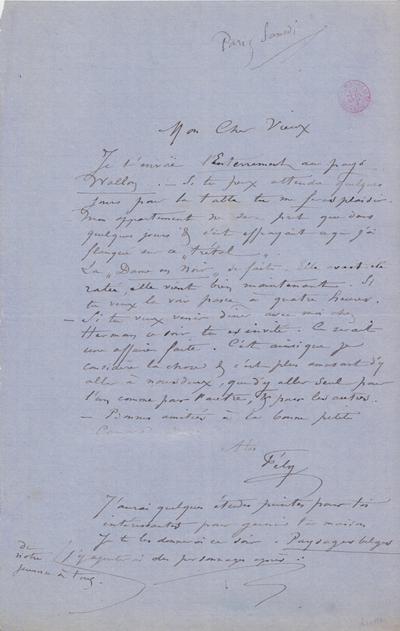 Paris, Samedi
Mon Cher Vieux
Je t'envoie l'Enterrement au pays
Wallon. – Si tu peux attendre quelques
jours pour la table tu me feras plaisir.
Mon appartement ne sera prêt que dans
quelques jours & c'est effrayant ce que j'ai
sur ce "tréteau".
La "Dame en Noir" se fait. Elle avait été
ratée, elle vient bien maintenant. Si
tu veux la voir passe à quatre heures.
– Si tu veux venir dîner avec moi chez
Herman ce soir tu es invité. Ce serait
une affaire faite. C'est ainsi que je
considère la chose & c'est plus amusant d'y
aller à nous deux, que d'y aller seul pour
l'un comme pour l'autre, & pour les autres.
– Bonnes amitiés à la bonne petite
A toi
Fély
J'aurai quelques études peintes pour toi
intéressantes pour garnir ta maison
Je te les donnerai ce soir. Paysages belges
J'y ajouterai des personnages après.
de
notre
jeunesse à tous.